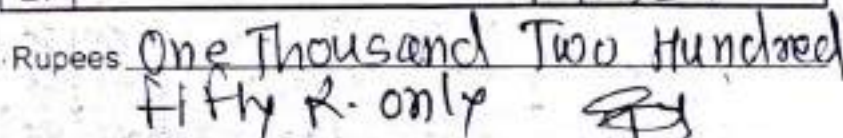 Rupees One Thousand Two Hundred
fifty R. only